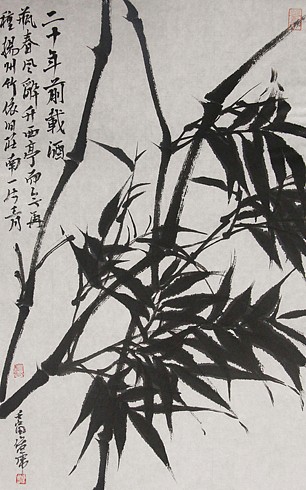 二十年前載酒
瓶春风醉竹西亭而今再
種揚州竹依旧淮南一片青